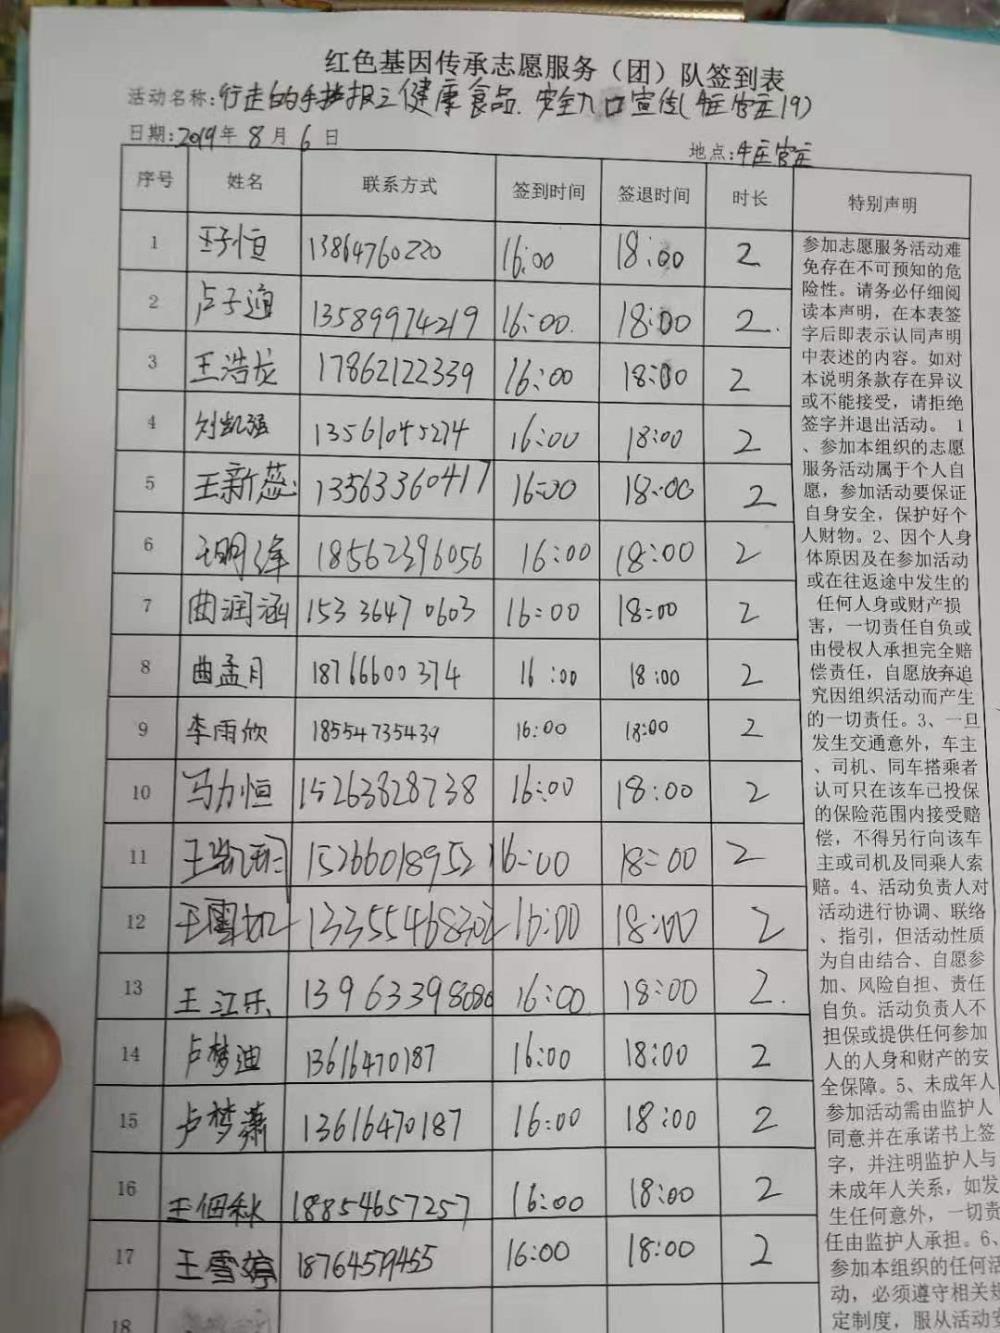 红色基因传承志愿服务（团）队签到表
活动名称:行走的手抄报之健康食品、安全入口宣传(牛庄官庄19)
日期:2019年8月6日
地点:牛庄官庄
序号 姓名 联系方式 签到时间 签退时间 时长 特别声明
1 王子恒 13864760220 16:00 18:00 2
2 卢子 13589974219 16:00. 18:00 2.
3 王浩龙 17862122339 16:00 18:00 2
4 刘凯强 13561045274 16:00 18:00 2
5 王新蕊 13563360417 16:00 18:00 2
6 王明泽 18562396056 16:00 18:00 2
7 曲润涵 15336470603 16:00 18:00 2
8 曲孟月 18766600374 16:00 18:00 2
9 李雨欣 18554735439 16:00 18:00 2
10 马力恒 15263828738 16:00 18:00 2
11 王凯 15266018952 16:00 18:00 2
12 王雪 16:00 18:00 2
13 王江乐 16:00 18:00 2.
14 卢梦迪 13616470187 16:00 18:00 2
15 卢梦潇 13616470187 16:00 18:00 2
16 王佃秋 18854657257 16:00 18:00 2
17 王雪婷 18764579455 16:00 18:00 2
18
参加志愿服务活动难
免存在不可预知的危
险性。请务必仔细阅
读本声明，在本表签
字后即表示认同声明
中表述的内容。如对
本说明条款存在异议
或不能接受，请拒绝
签字并退出活动。 1
、参加本组织的志愿
服务活动属于个人自
愿，参加活动要保证
自身安全，保护好个
人财物。2、因个人身
体原因及在参加活动
或在往返途中发生的
任何人身或财产损
害，一切责任自负或
由侵权人承担完全赔
偿责任，自愿放弃追
究因组织活动而产生
的一切责任。3、一旦
发生交通意外，车主
、司机、同车搭乘者
认可只在该车已投保
的保险范围内接受赔
偿，不得另行向该车
主或司机及同乘人索
赔。4、活动负责人对
活动进行协调、联络
、指引，但活动性质
为自由结合、自愿参
加、风险自担、责任
自负。活动负责人不
担保或提供任何参加
人的人身和财产的安
全保障。5、未成年人
参加活动需由监护人
同意并在承诺书上签
字，并注明监护人与
未成年人关系，如发
生任何意外，一切责
任由监护人承担。6、
参加本组织的任何活
动，必须遵守相关规
定制度，服从活动安